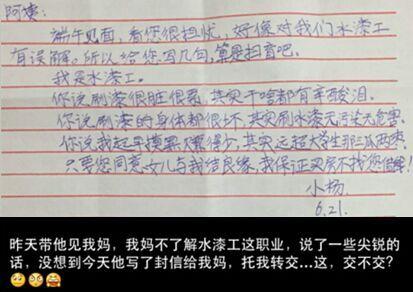 阿姨:
端午见面,看您很担忧,好像对我们水漆工
有误解。所以给您写几句,算是扫盲吧。
我是水漆工。
你说刷漆很脏很累,其实干啥都有辛酸泪。
你说刷漆的身体都很坏,其实刷水漆无污染无危害。
你说我起早摸黑又赚得少,其实远超大学生那三瓜两枣。
只要您同意女儿与我结良缘,我保证买房不找您借钱!
小杨
6.21.
昨天带他见我妈,我妈不了解水漆工这职业,说了一些尖锐的
话,没想到今天他写了封信给我妈,托我转交...这,交不交?